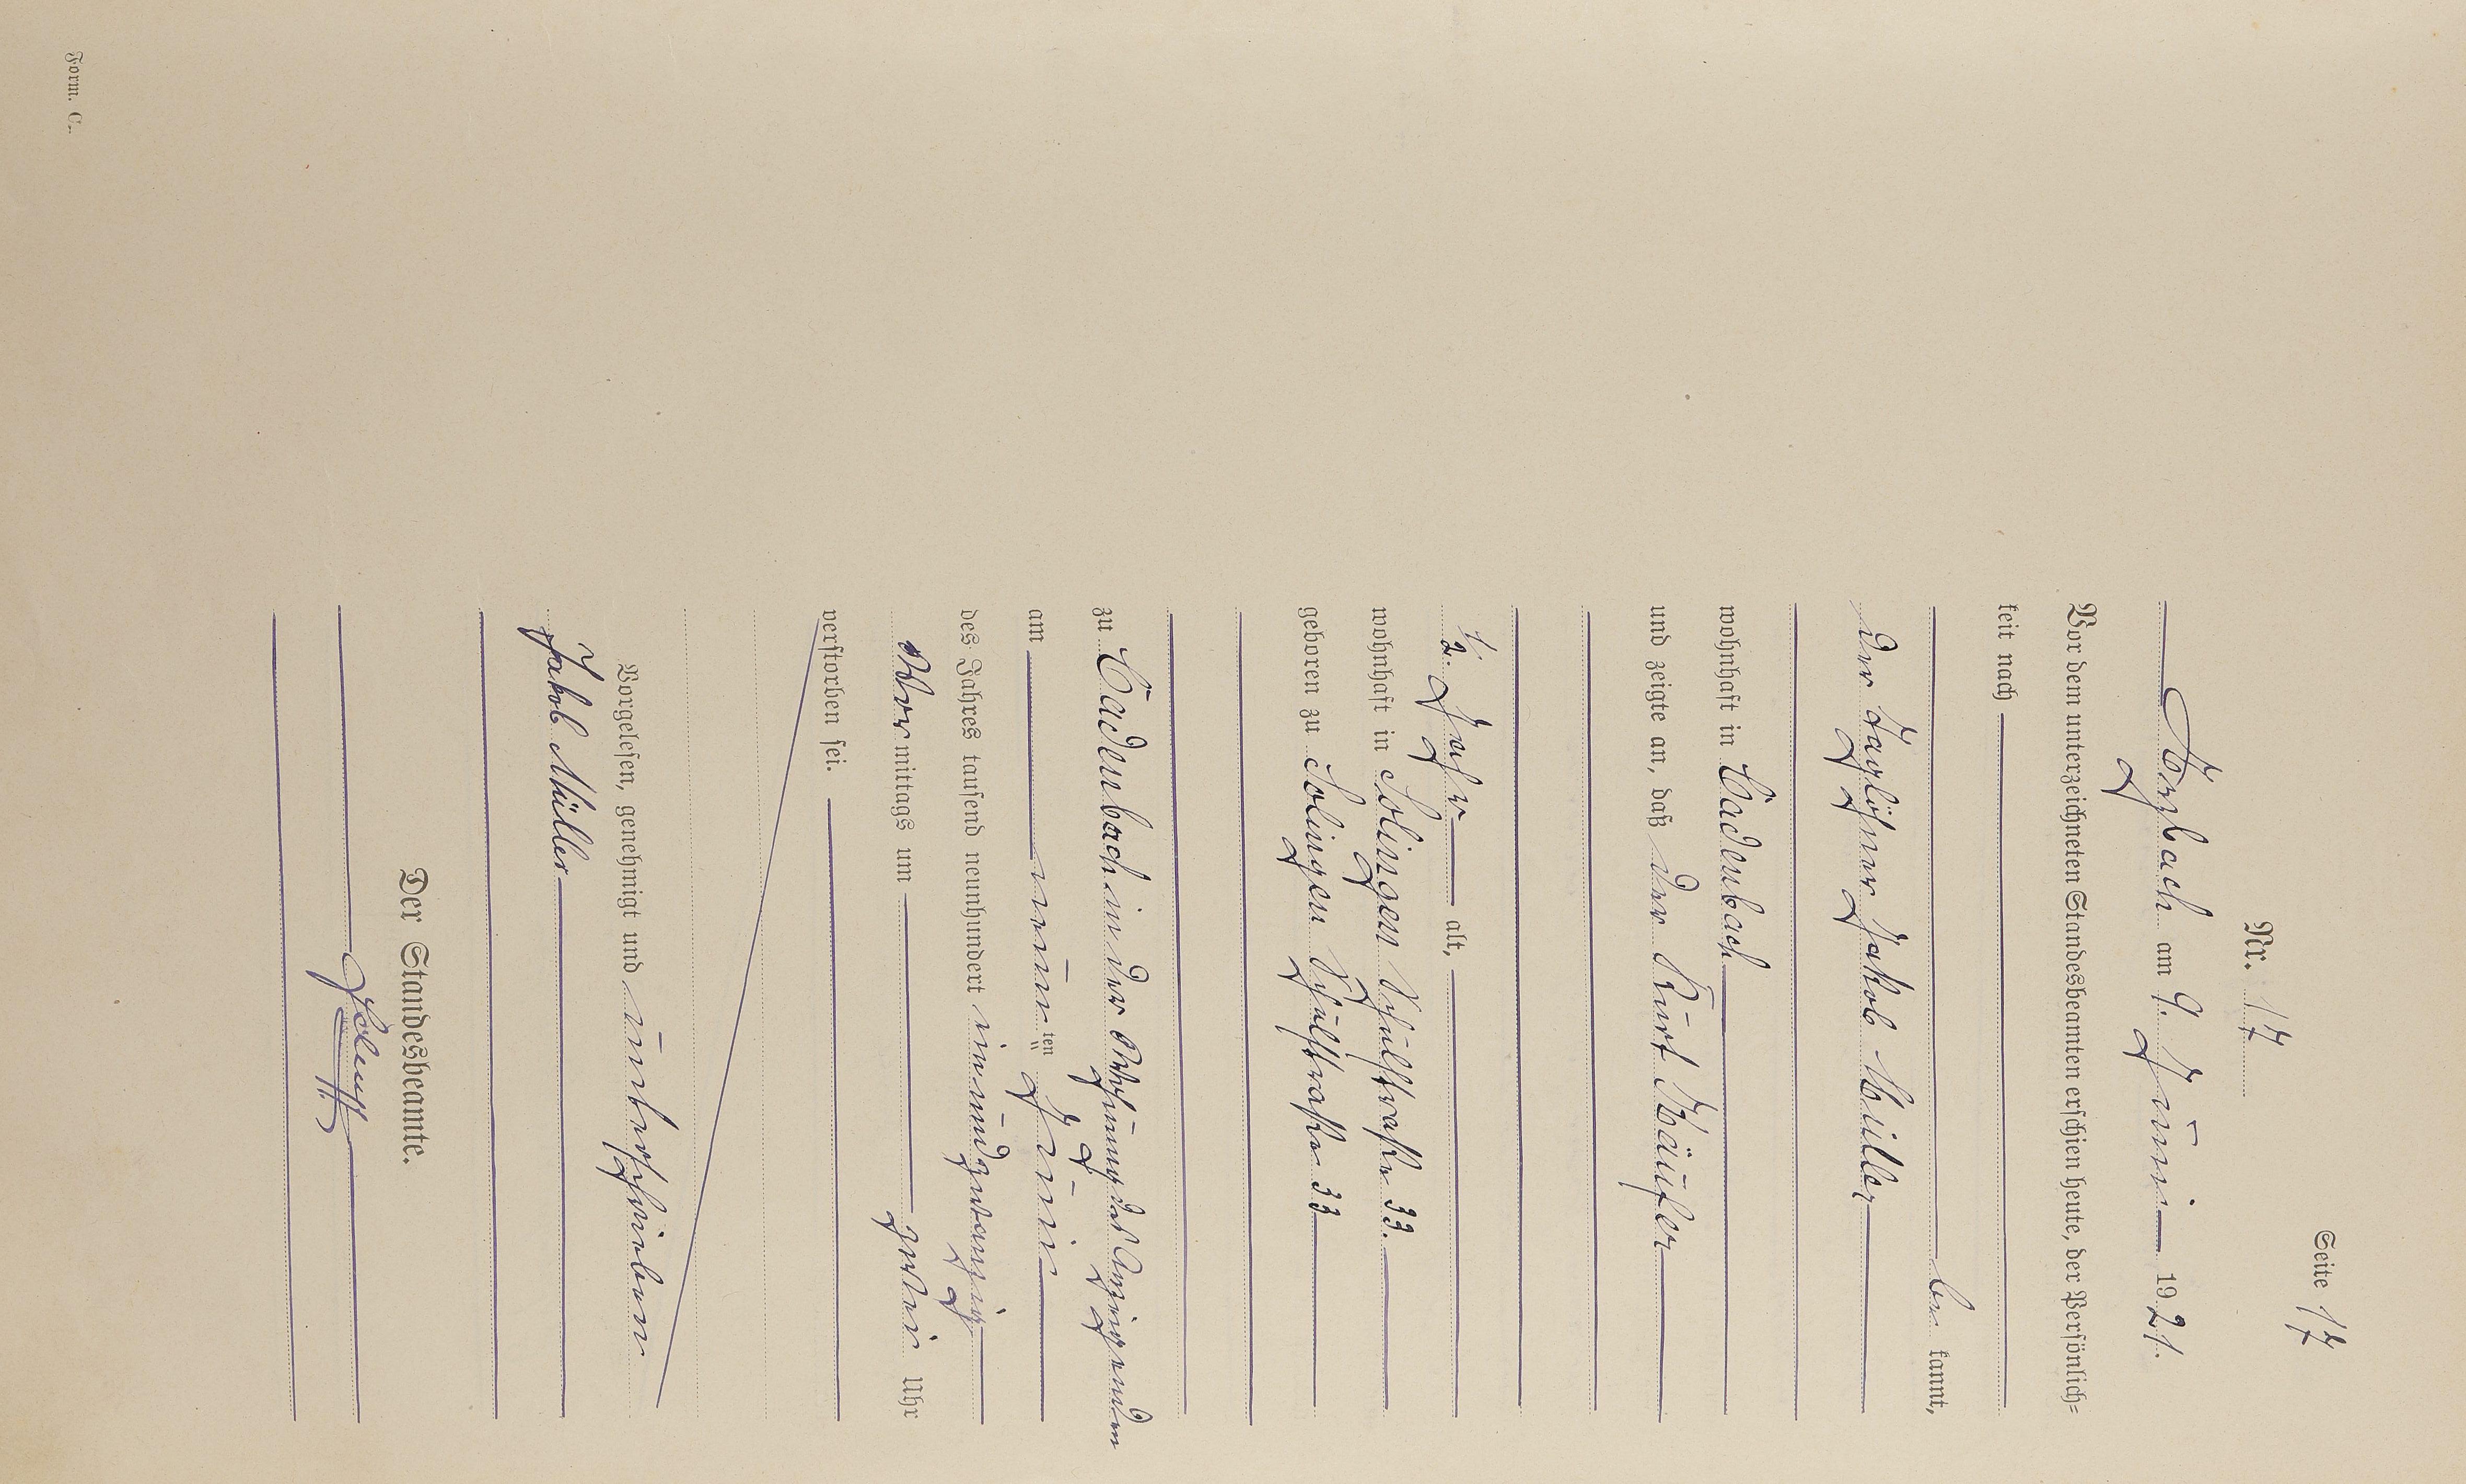 Seite 17
Nr. 17
Arzbach am 9. Juni 1921.
Vor dem unterzeichneten Standesbeamten erschien heute, der Persönlich=
keit nach
be kannt,
der Taglöhner Jakob Müller
wohnhaft in Cadenbach
und zeigte an, daß der Kurt Käufer
1/2. Jahr alt,
wohnhaft in Solingen Schulstraße 33.
geboren zu Solingen Schulstraße 33
zu Cadenbach in der Wohnung des Anzeigenden
am neunten Juni
des Jahres tausend neunhundert einundzwanzig
Vor mittags um zwei Uhr
verstorben sei.
Vorgelesen, genehmigt und unterschrieben
Jakob Müller
Der Standesbeamte.
Form. C.